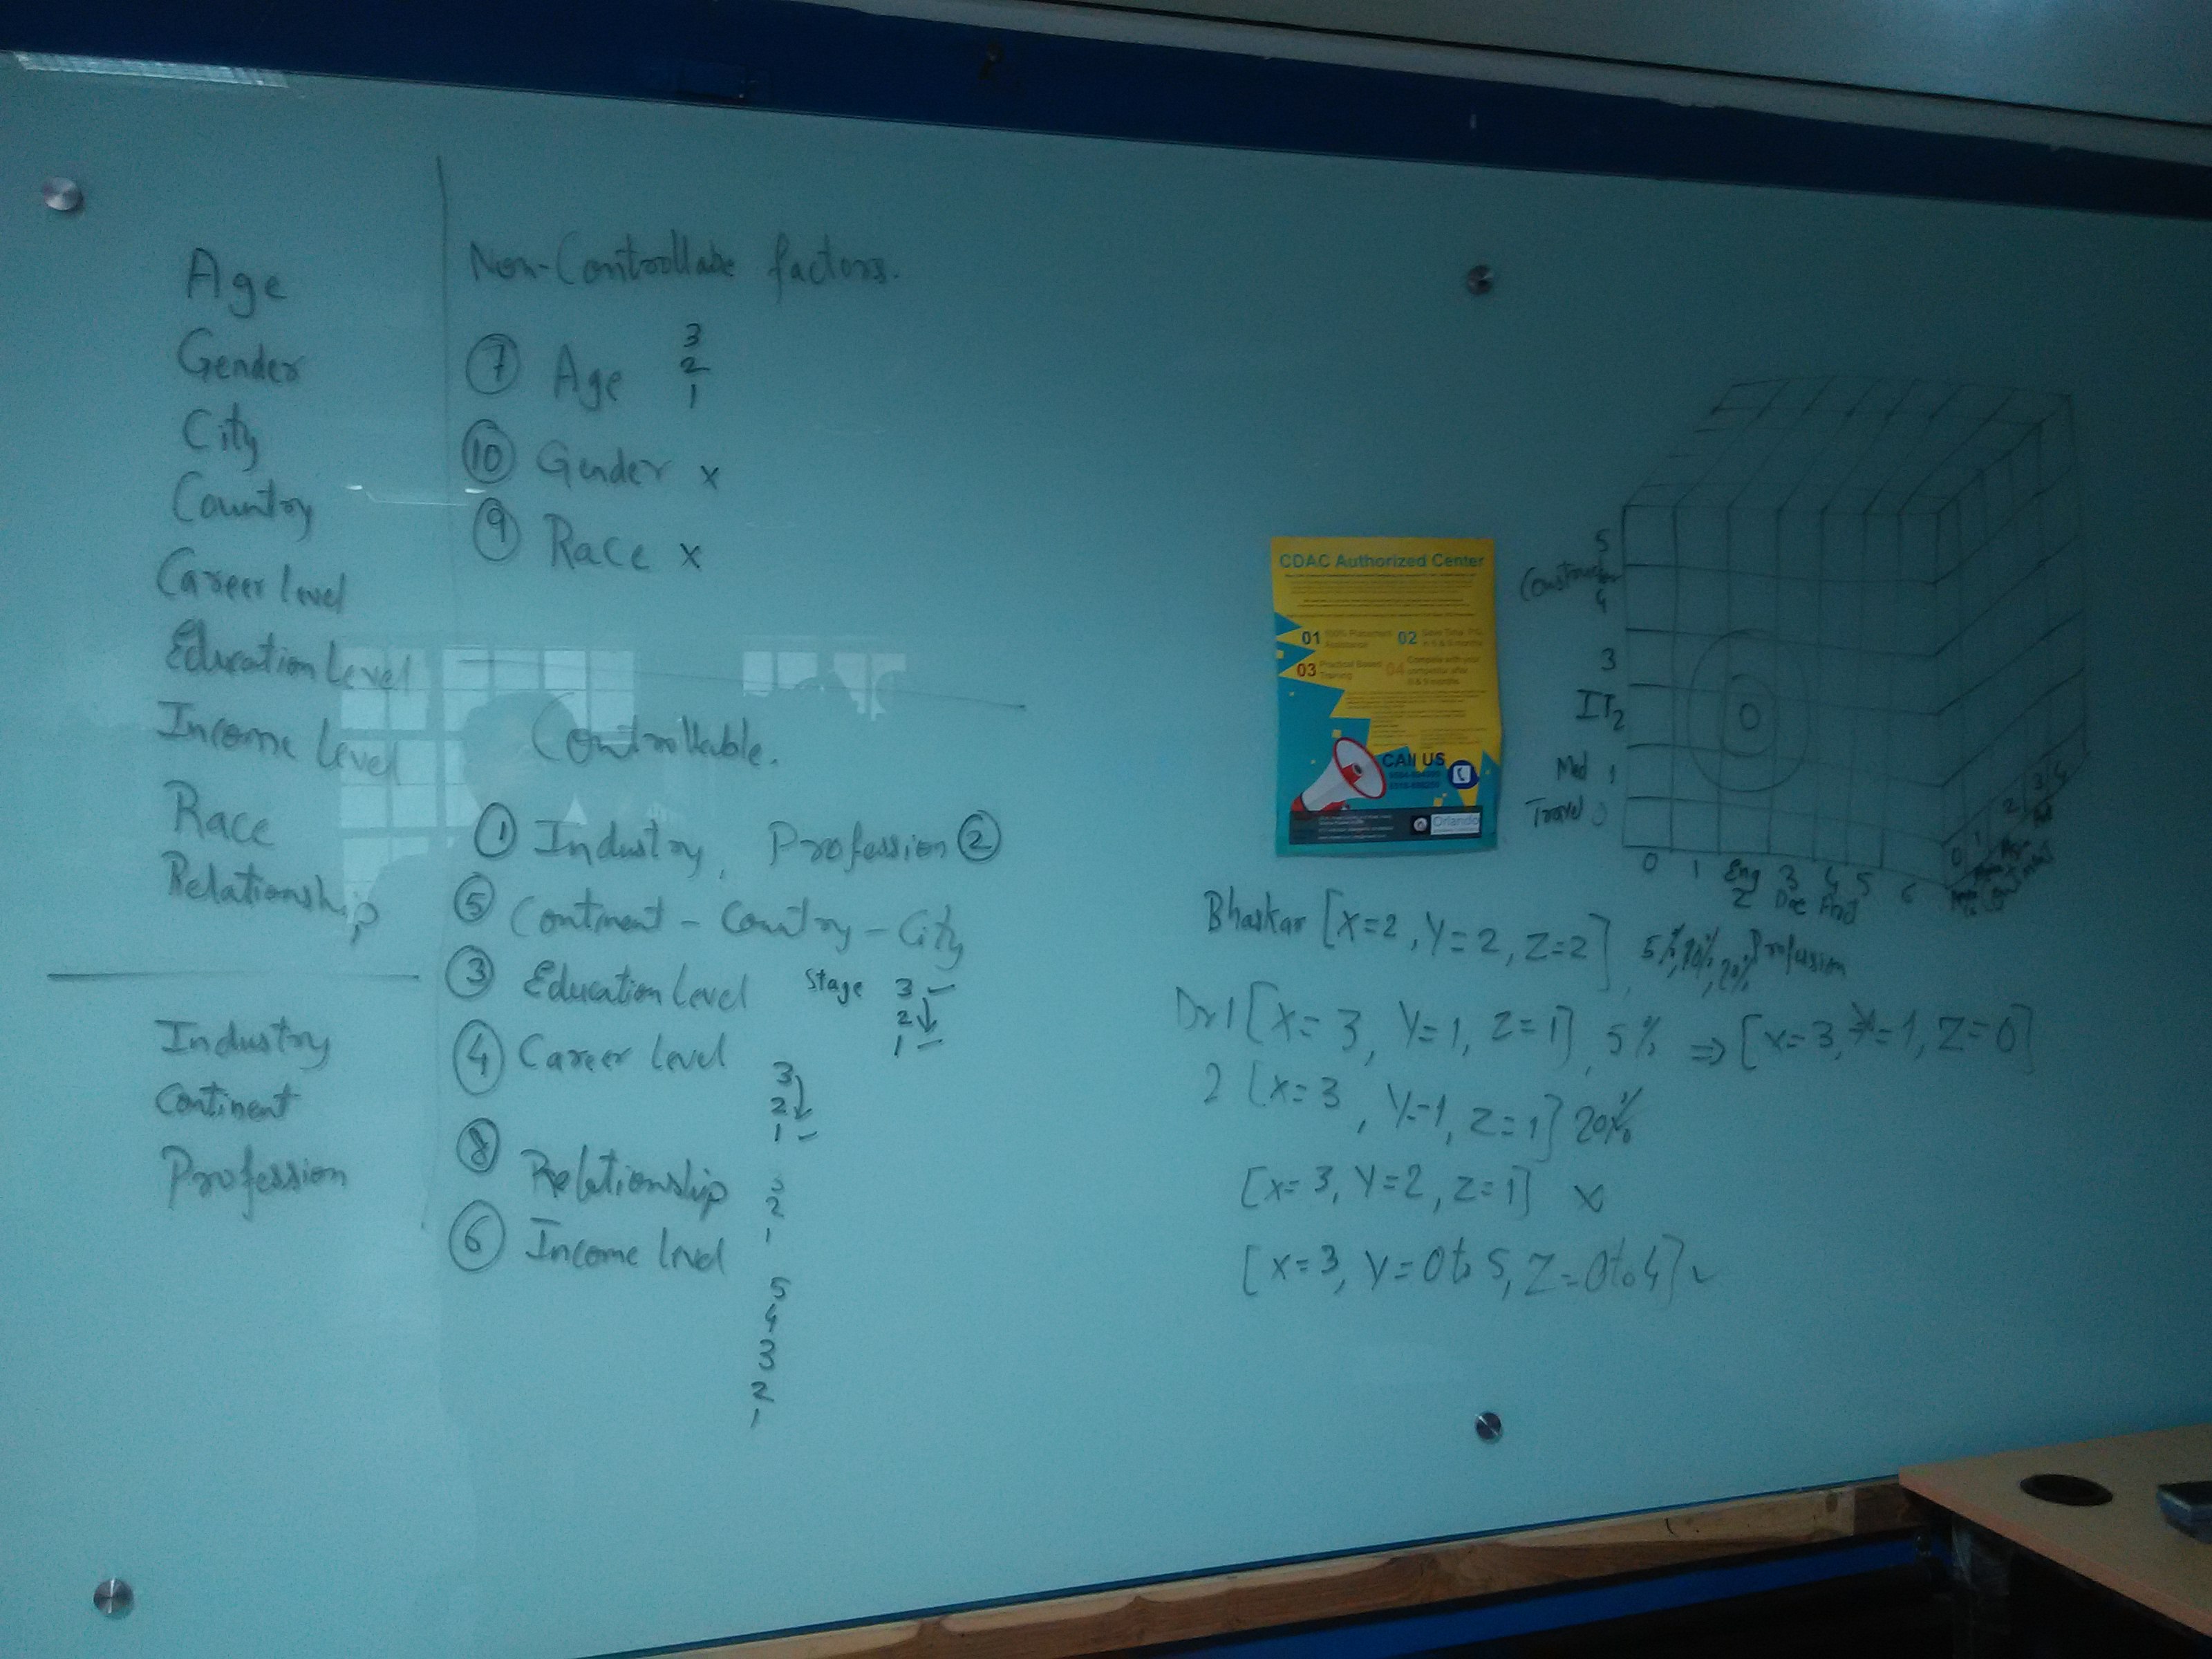 Age
Gender
City
Country
Career level
Education Level
Income level
Race
Relationship
Industry
Continent
Profession
Non-Controllable factors.
7 Age 3
2
1
10 Gender x
9 Race x
Controllable.
1 Industry, Profession 2
5 Continent - Country - City
3 Education Level Stage 3
2
1
4 Career level
3
2
1
8 Relationship 3
2
1
6 Income level
5
4
3
2
1
CDAC Authorized Center
01 100% Placement Assistance
02
03 Practical Based Training
04
CAll US
Orlando
5
Construction
4
3
IT 2
Med 1
Travel 0
0 1 Eng 2 3 Doc 4 5 6
0 1 2 3 4
Bhaskar [X=2, Y=2, Z=2], 5%, 10%, 20% Profession
Dr 1 [X=3, Y=1, Z=1], 5% ⇒ [X=3, Y=1, Z=0]
2 [X=3, Y=1, Z=1] 20%
[X=3, Y=2, Z=1] x
[X=3, Y=0 to 5, Z=0 to 4]